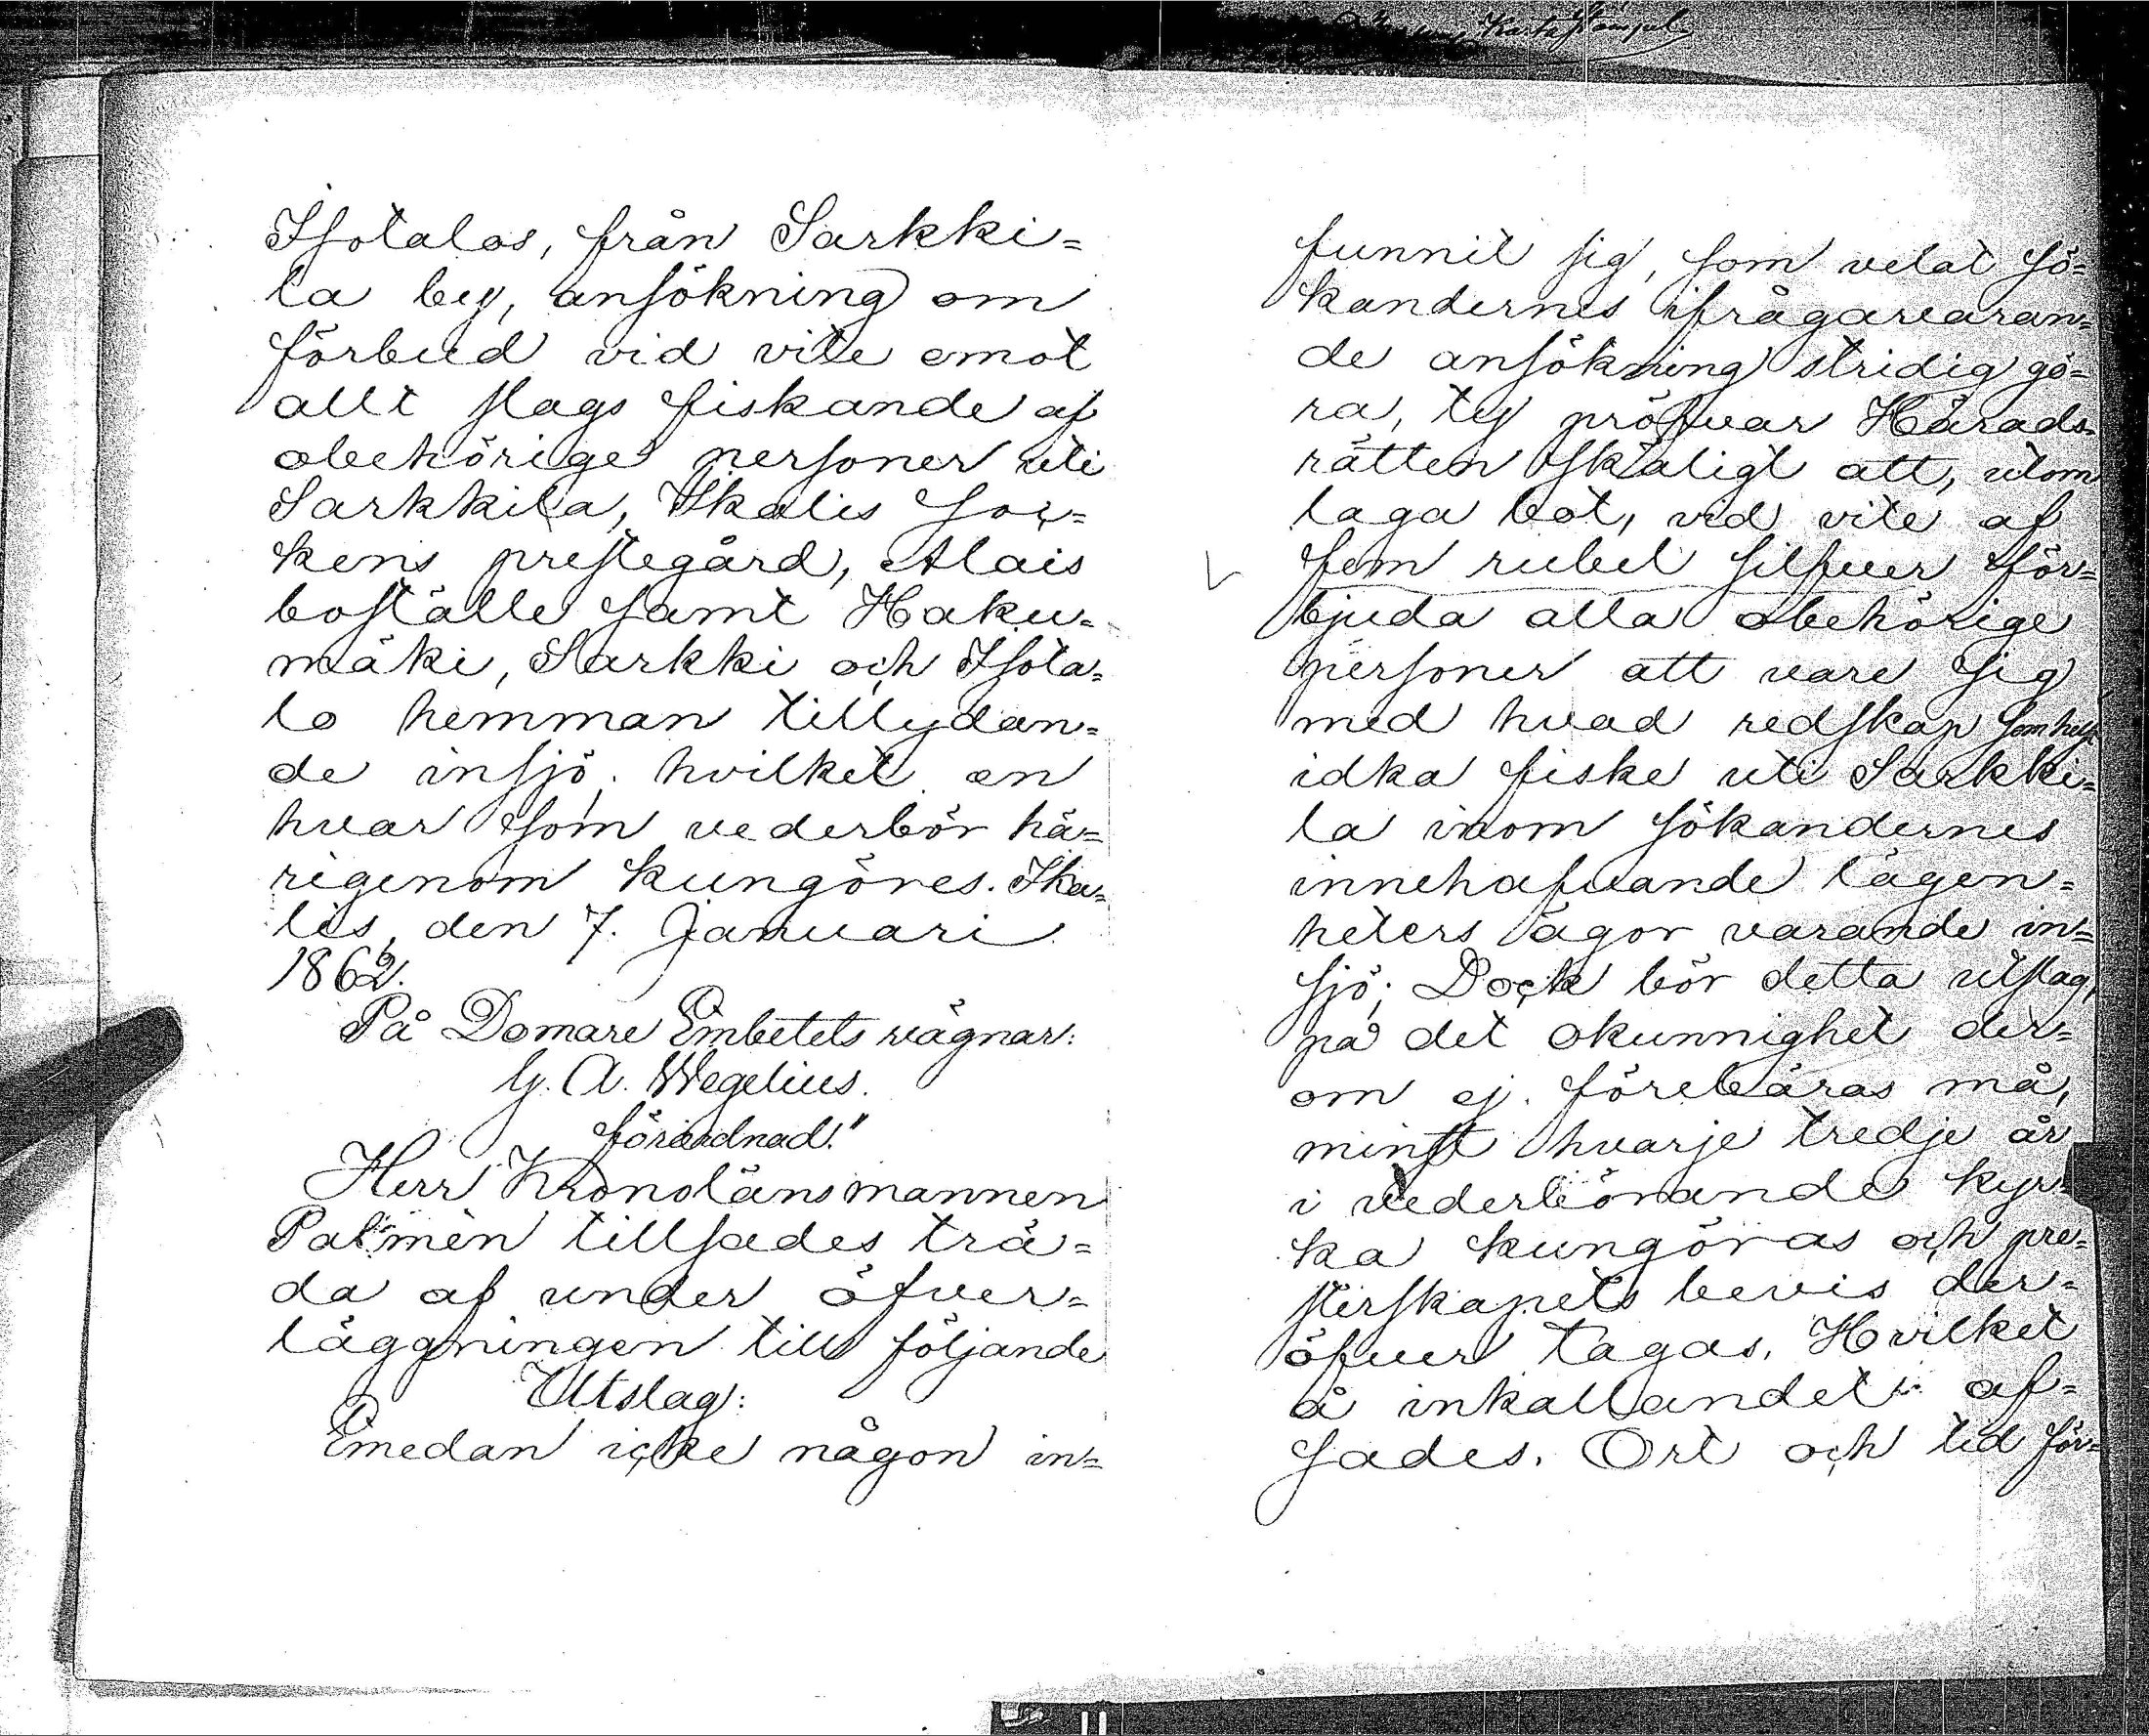 Isotalos, från Sarkki=
la by, ansökning om
förbud vid vite emot
allt slags fiskande af
obehörige personer uti
Sarkkila, Ikalis soc=
kens prestegård, Alais
boställe samt Haku=
mäki, Sarkki och Isota=
lo hemman tillydan=
de insjö; hvilket en
hvar som vederbör hä=
rigenom kungöres. Ika=
lis, den 7. Januari
1862.
På Domare Embetets vägnar:
G. A. Wegelius.
förordnad."
Herr Kronolänsmannen
Palmén tillsades trä=
da af under öfver=
läggningen till följande
Utslag:
Emedan icke någon in=
funnit sig, som velat sö=
kandernes ifrågavaran=
de ansökning stridig gö=
ra, ty pröfvar Härads
rätten skäligt att, utom
laga bot, vid vite af
fem rubel silfver för=
bjuda alla obehörige
personer att vare sig
med hvad redskap som helst
idka fiske uti Sarkki=
la inom sökandernes
innehafvande lägen=
heters ägor varande in=
sjö; Dock bör detta utslag,
på det okunnighet der=
om ej förebäras må,
minst hvarje tredje år
i vederbörande kyr=
ka kungöras och pre=
sterskapets bevis der=
öfver tagas. Hvilket
å inkallandet af=
sades. Ort och tid för=